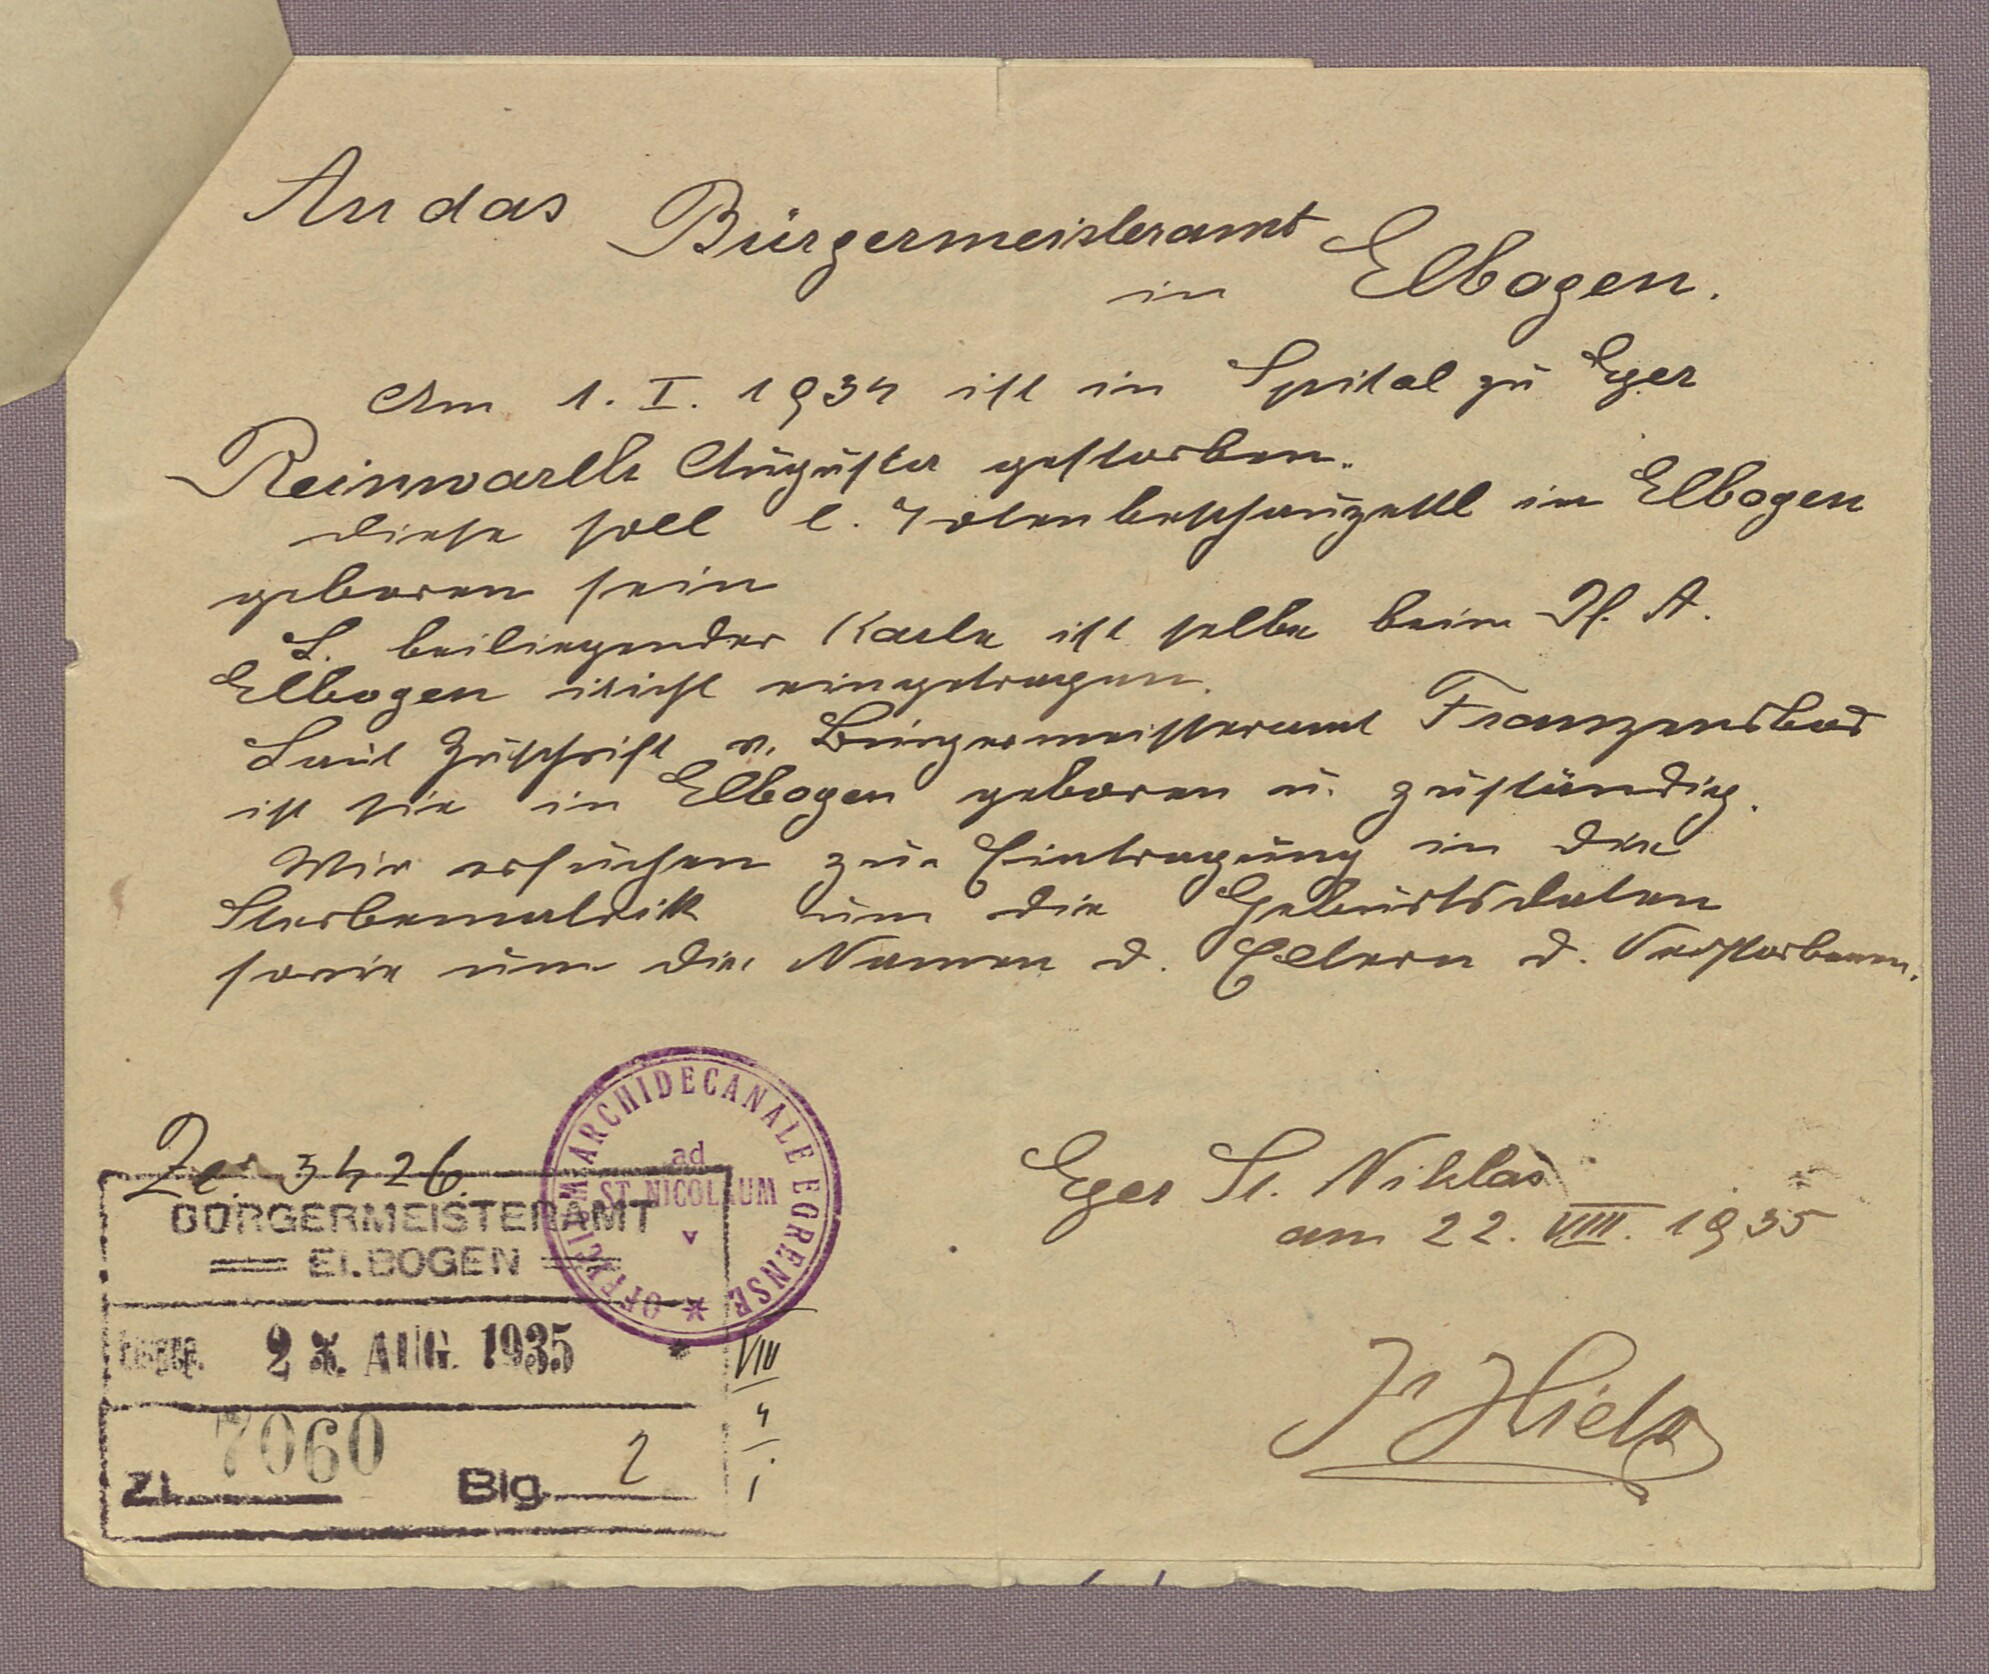 An das Bürgermeisteramt
in Elbogen.
Am 1. I. 1934 ist im Spital zu Eger
Reinwarth Augusta gestorben.
Diese soll l. Totenbeschauzettl in Elbogen
geboren sein
L. beiliegender Karte ist selbe beim Pf. A.
Elbogen nicht eingetragen.
Laut Zuschrift v. Bürgermeisteramt Franzensbad
ist sie in Elbogen geboren u. zuständig.
Wir ersuchen zur Eintragung in die
Sterbematrik um die Geburtsdaten
sowie um die Namen d. Eltern d. Verstorbenen.
OFFICIUM ARCHIDECANALE EGRENSE
ad
ST. NICOLAUM
3426
Eger St. Niklas
am 22. VIII. 1935
BÜRGERMEISTERAMT
ELBOGEN
AUG. 1935
VIII
4
1
7060
Zl. Blg. 2